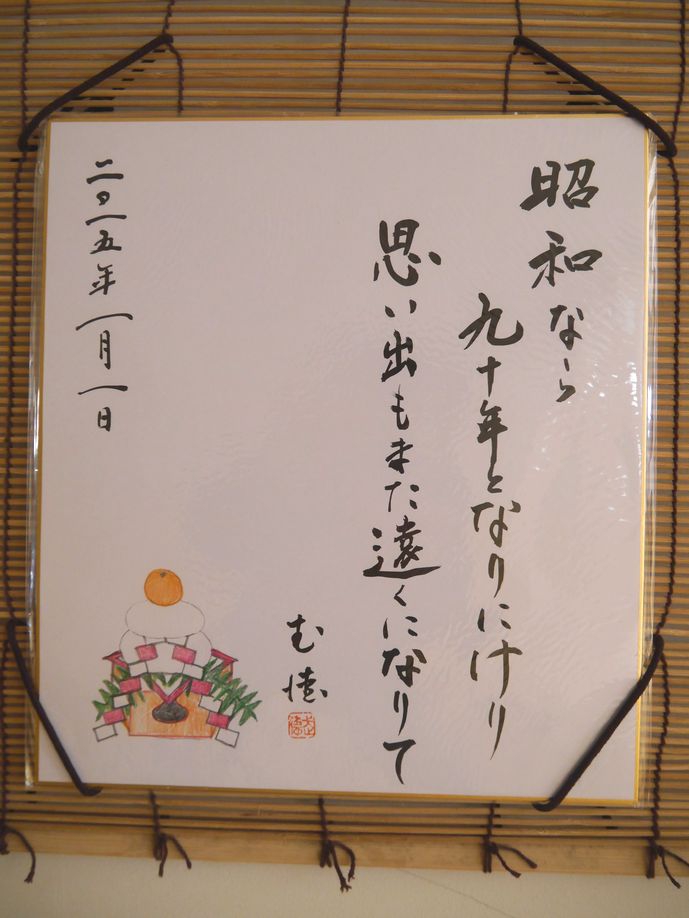 昭和なら
九十年となりにけり
思い出もまた遠くになりて
二〇一五年一月一日